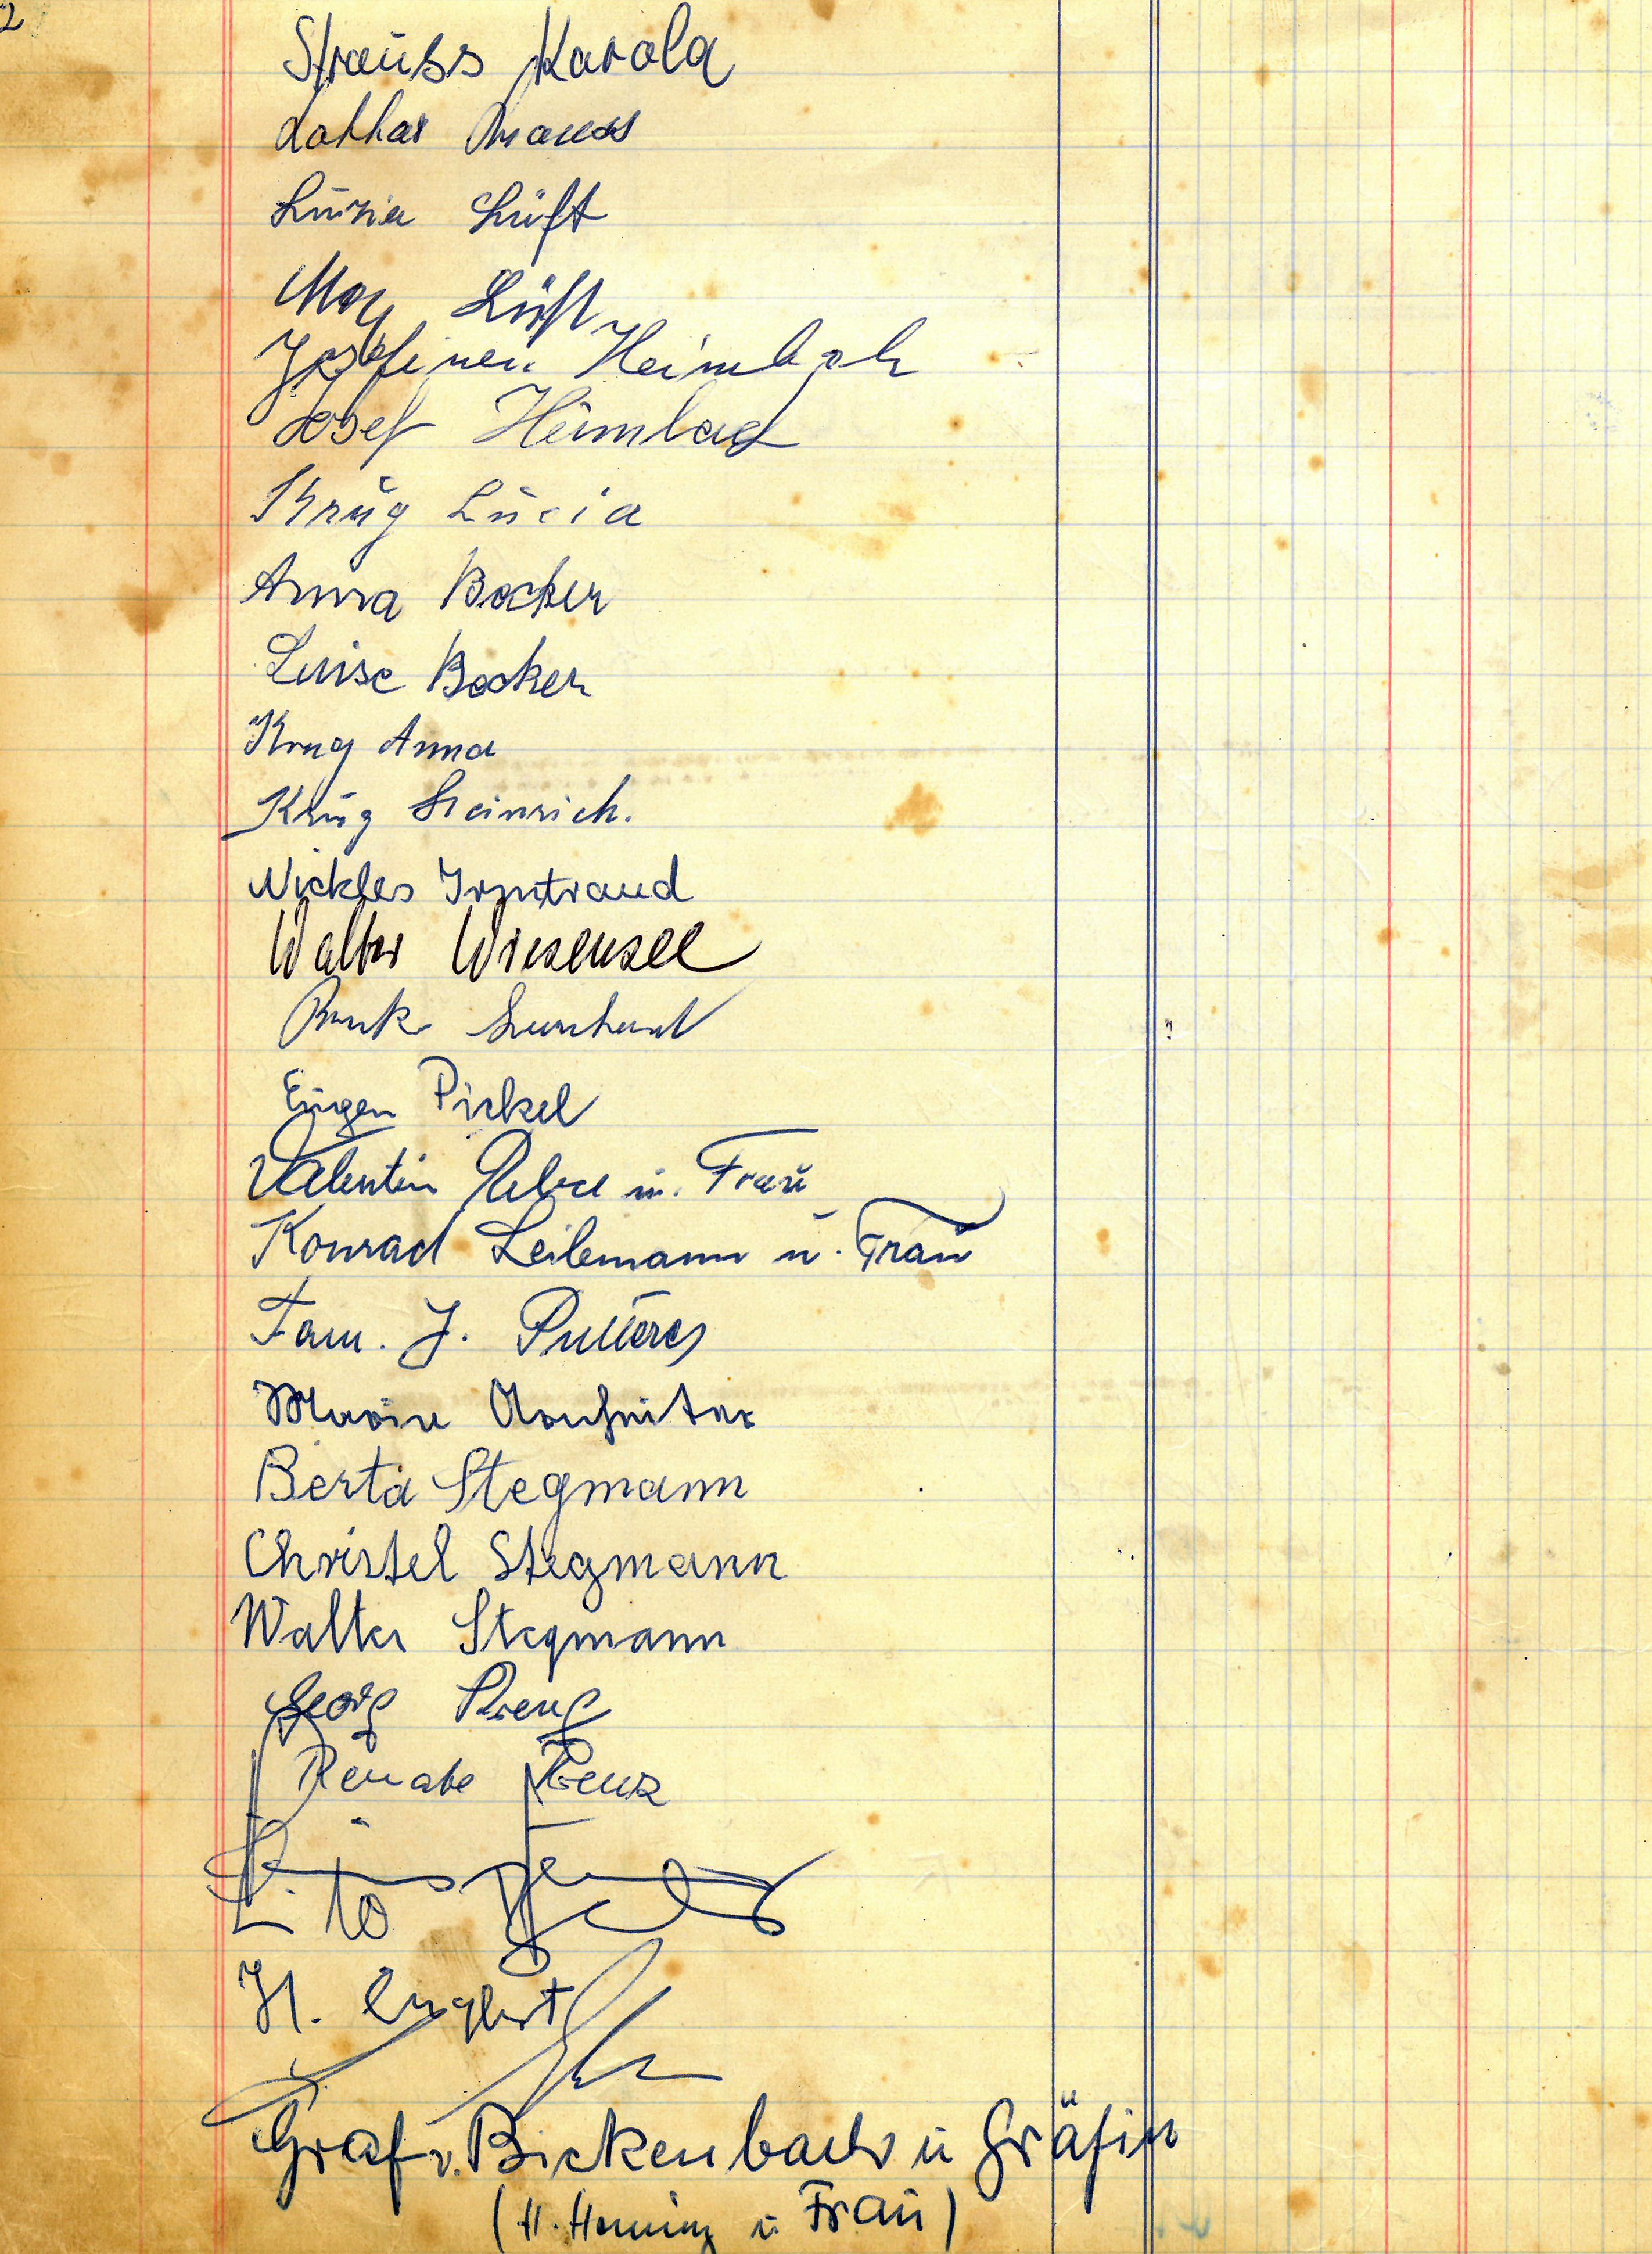 2
Strauss Karola
Lothar Strauss
Luzia Lüft
May Lüft
Josefine Heimbach
Josef Heimbach
Krug Lucia
Anna Becker
Luise Becker
Krug Anna
Krug Heinrich.
Nickles Irmtraud
Walter Wiesensee
Eugen Pickel
Valentin u. Frau
Konrad Leilemann u. Frau
Fam. J.
Berta Stegmann
Christel Stegmann
Walter Stegmann
Georg Renz
Renate Renz
H. Englert
Graf v. Bickenbach u Gräfin
(H. Henning u Frau)